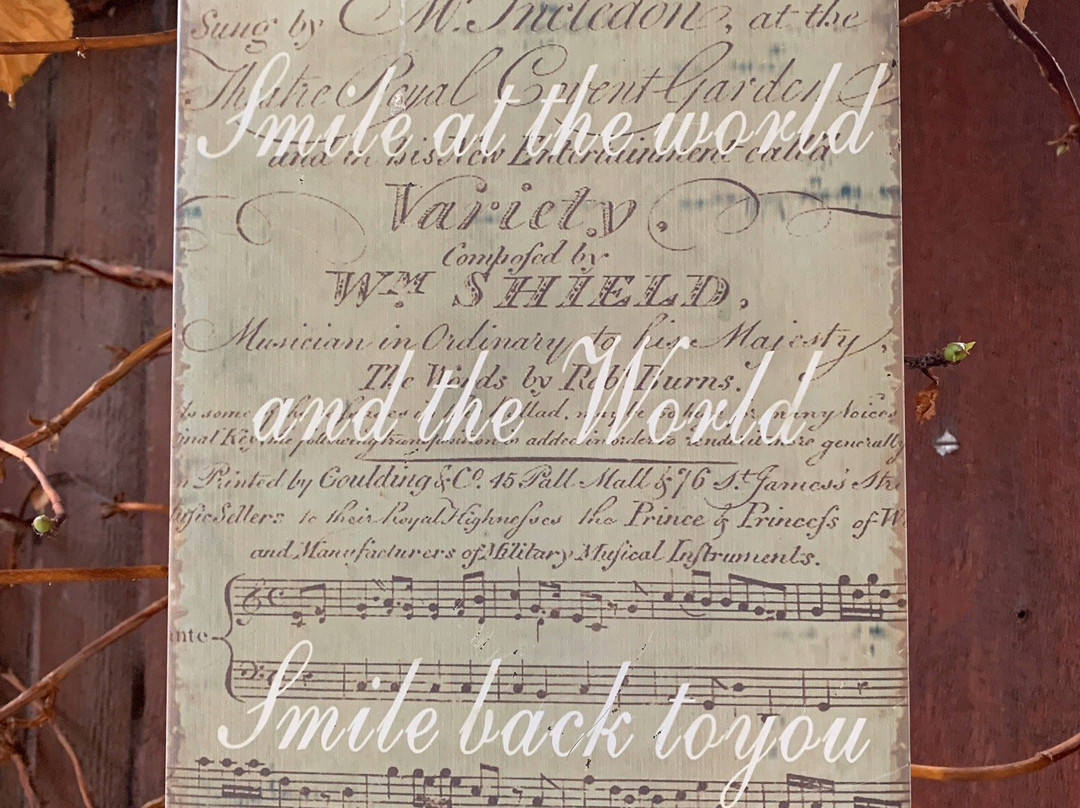 Sung by M. Incledon, at the
Theatre Royal Covent Garden
Smile at the world
and in his New Entertainment call'd
Variety,
Composed by
Wm. SHIELD,
Musician in Ordinary to his Majesty,
The Words by Robt. Burns.
and the World
many Voices
following transpositions added in order to render generally
Printed by Goulding & Co. 45 Pall Mall & 76 St. James's
Sellers to their Royal Highnesses the Prince & Princess of W
and Manufacturers of Military Musical Instruments.
Smile back to you